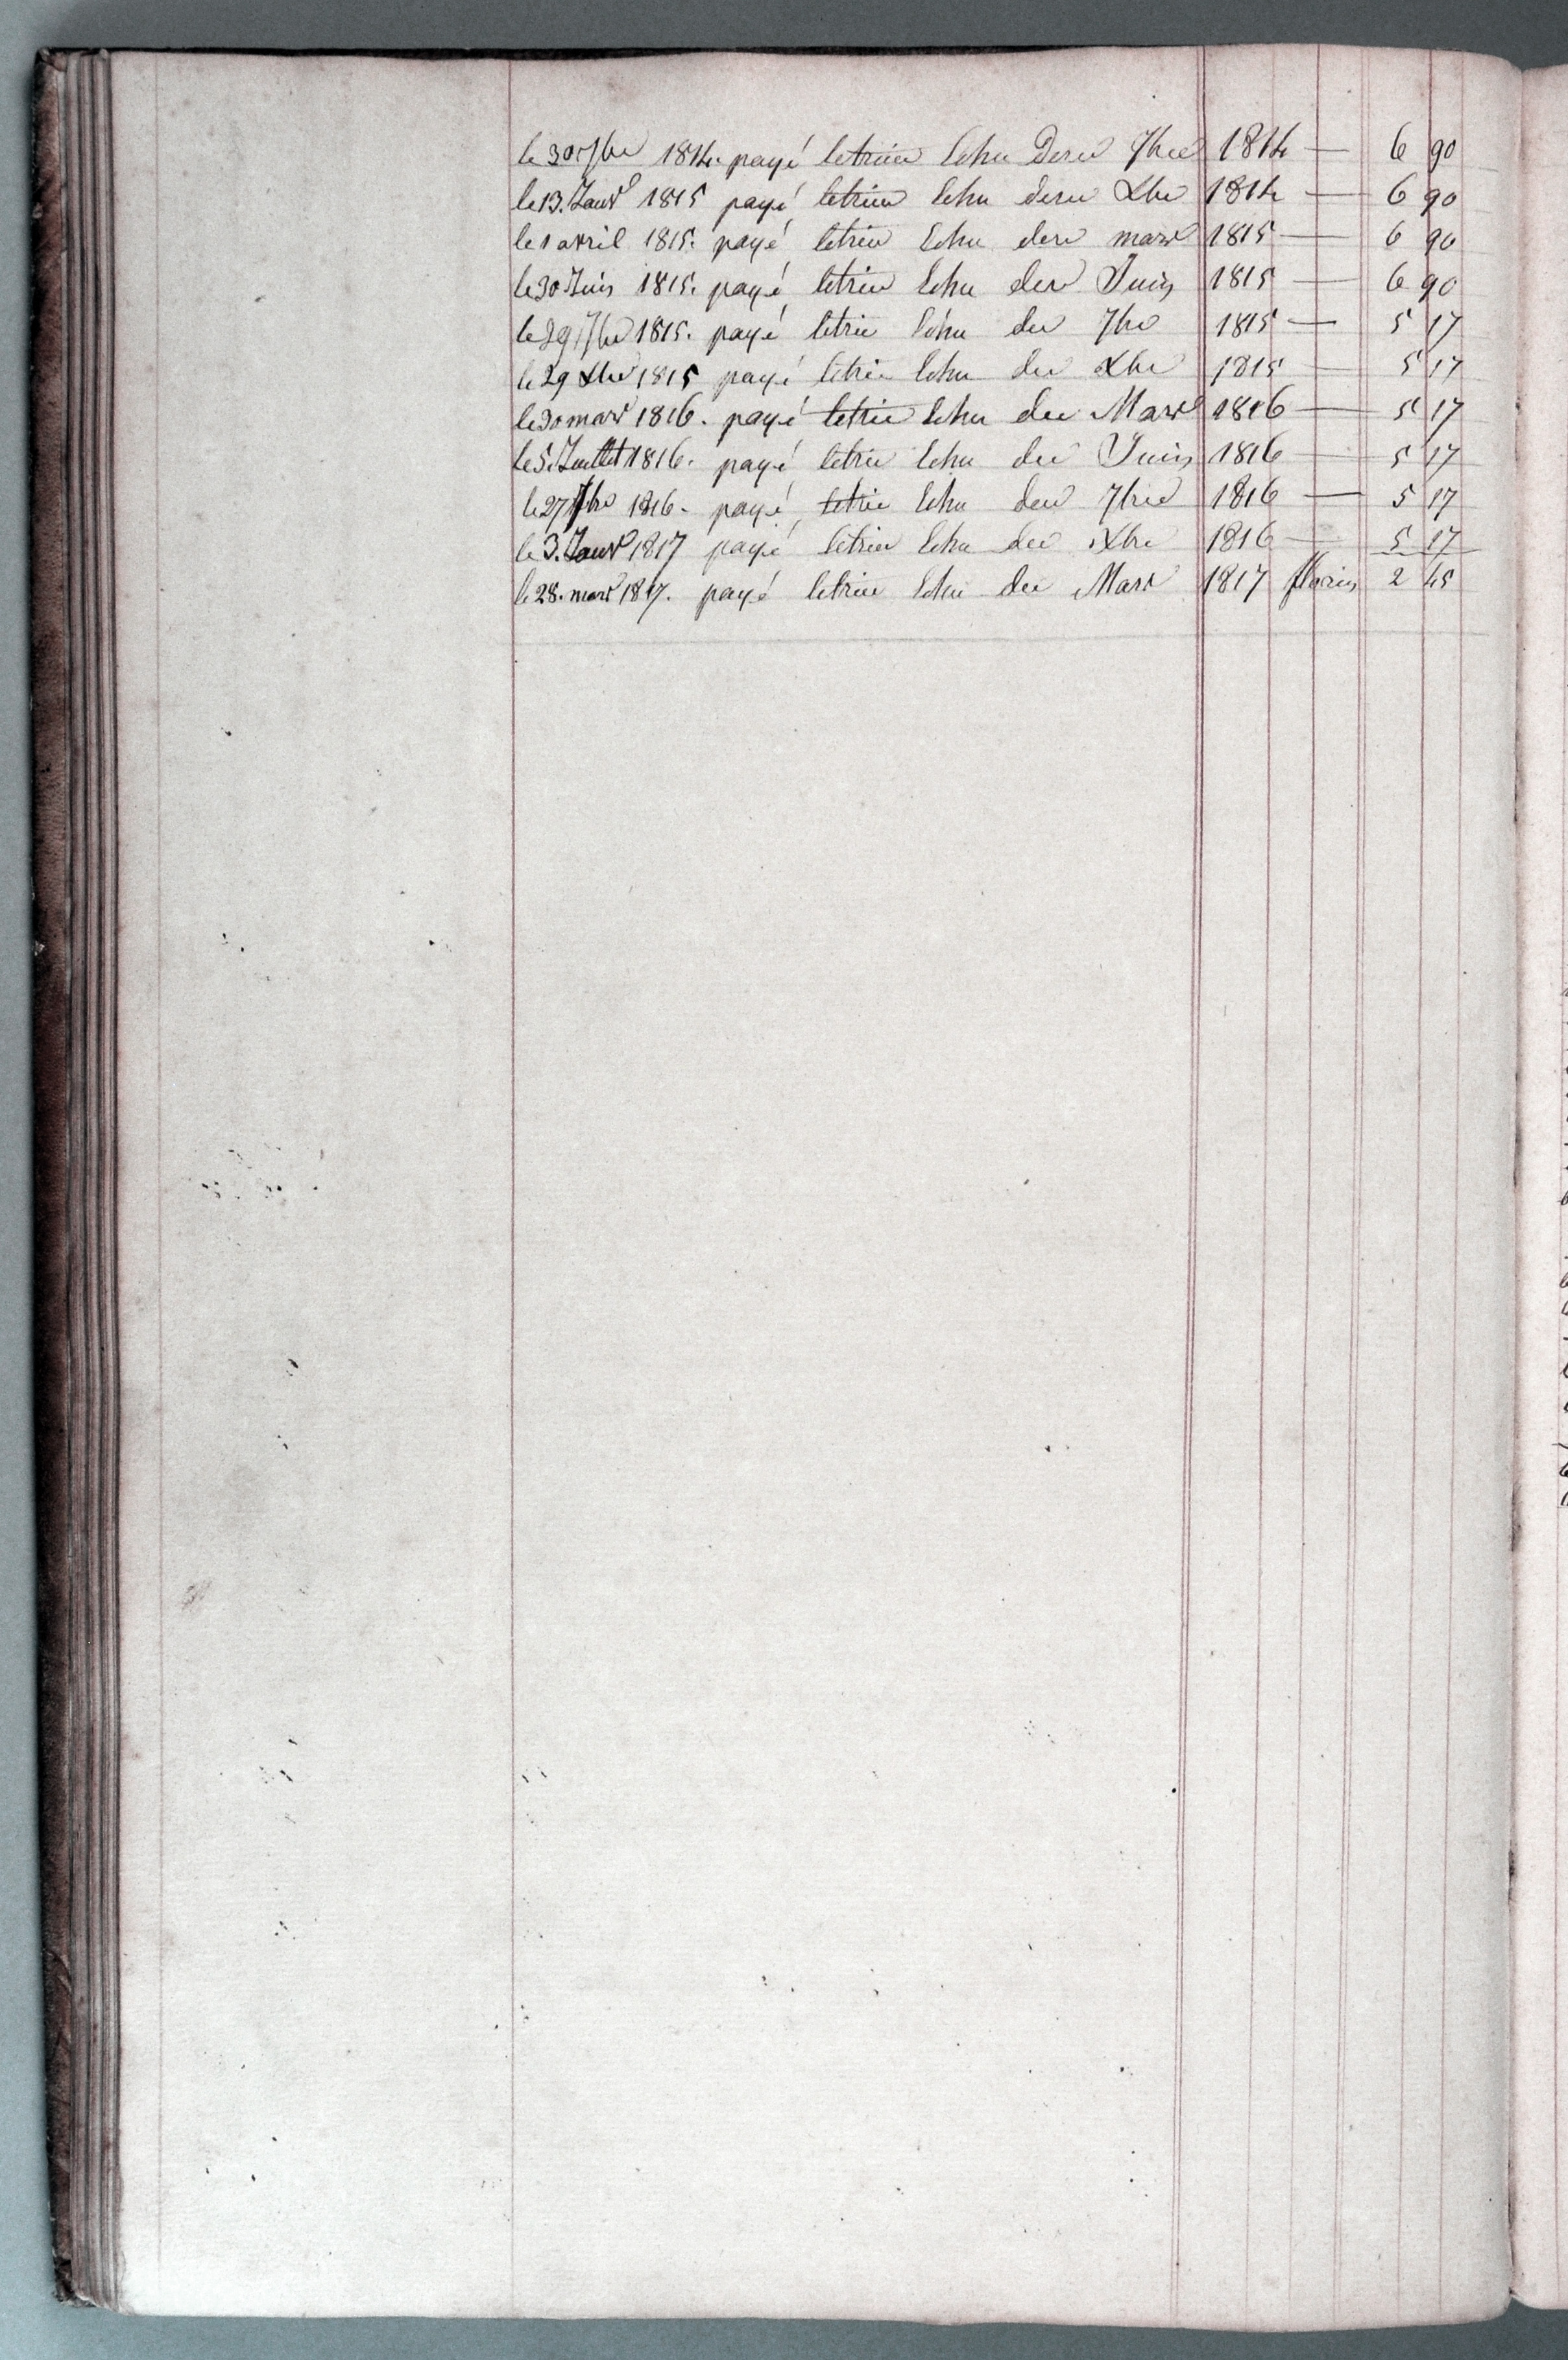 le 30 7bre 1814. payé letrim Echu dern 7bre 1814 — 6 90
le 13. Janvr 1815 payé letrim Echu dern Xbre 1814 — 6 90
le 1 avril 1815. payé letrim Echu dern mars 1815 — 6 90
le 30 Juin 1815. payé letrim Echu der Juin 1815 — 6 90
le 29 7bre 1815. payé letrie Echu der 7bre 1815 — 5 17
le 29 Xbre 1815 payé letrie Echu der Xbre 1815 — 5 17
le 30 mars 1816. payé letrie Echu der Mars 1816 — 5 17
le 5. Juillet 1816. payé letrie Echu der Juin 1816 — 5 17
le 27 7bre 1816 - payé letrie Echu der 7bre 1816 — 5 17
le 3. Janvr 1817 payé letrim Echu der Xbre 1816 — 5 17
le 28. mars 1817. payé letrim Echu der Mars 1817 florins 2 45